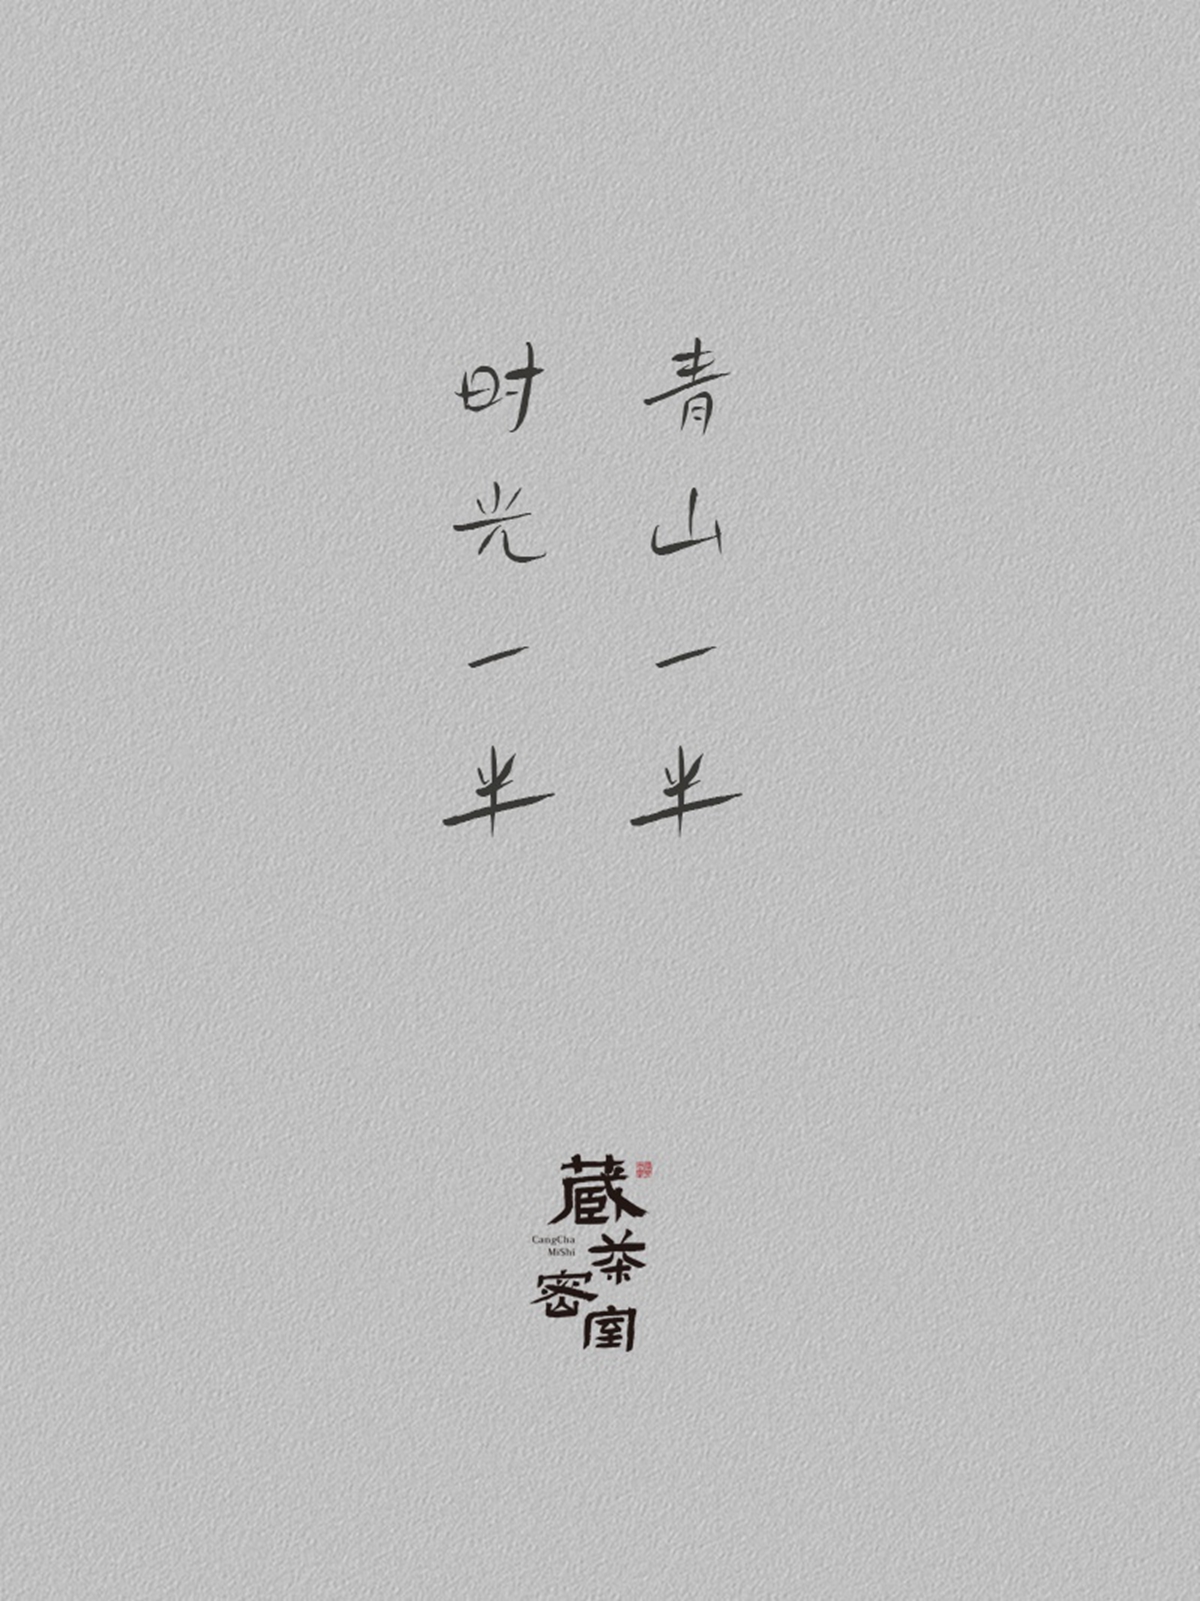 青山一半
时光一半
蔵茶密室
CangCha
MiShi